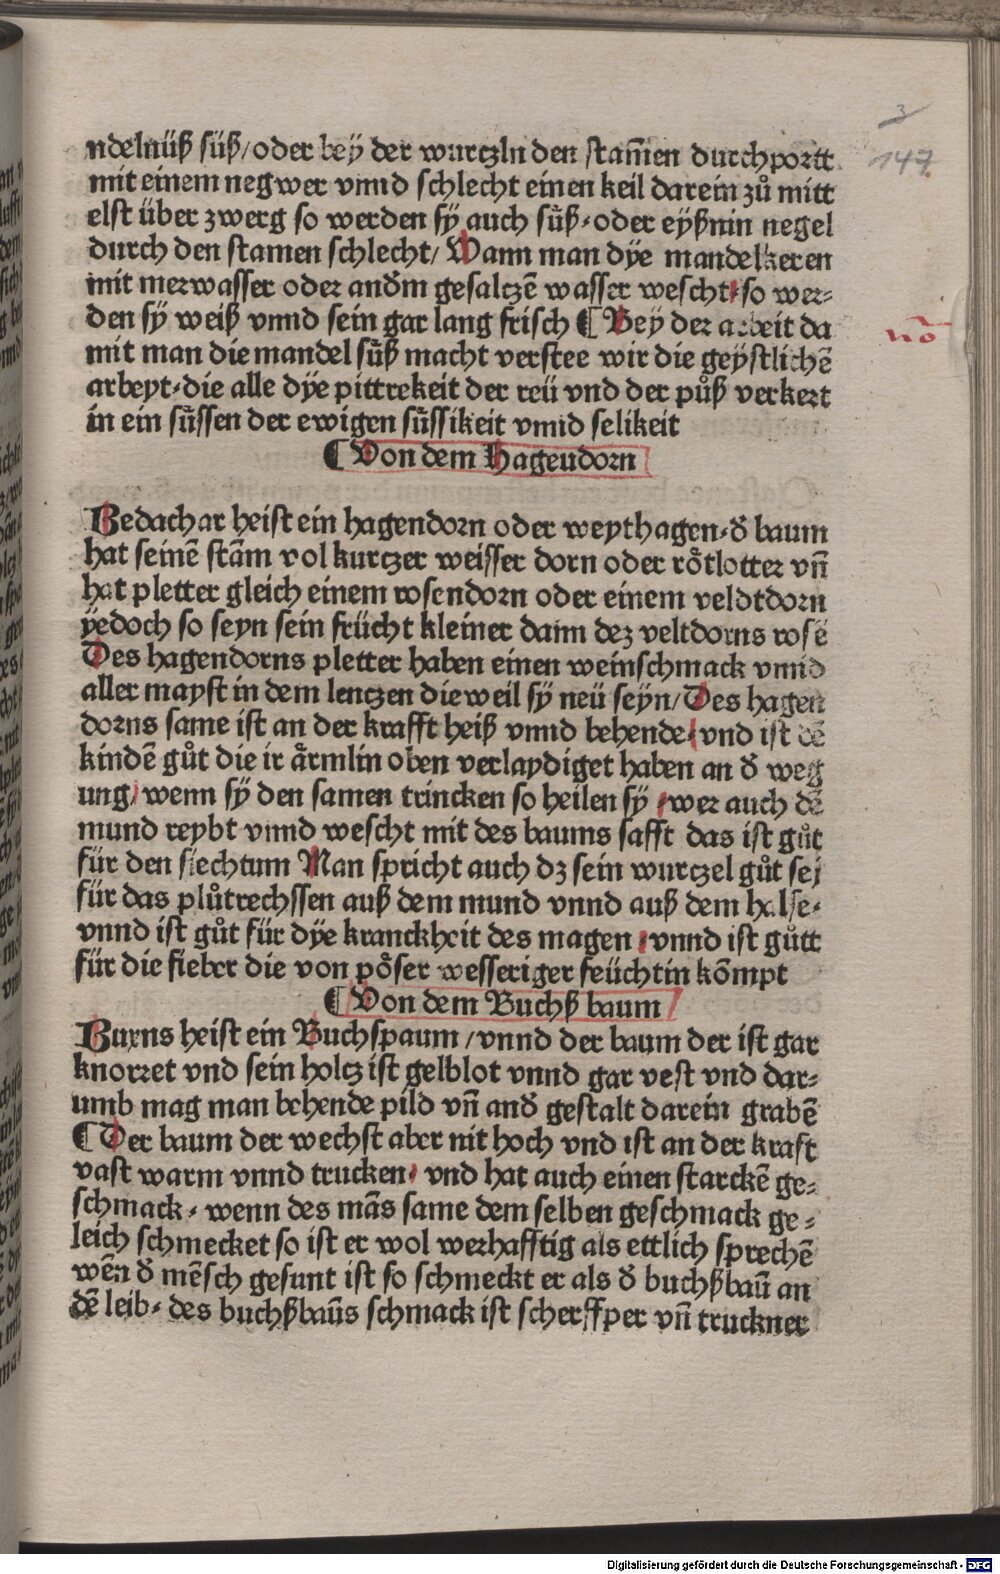 3
147
ndelnüß süß/oder bey der wurtzln den stam̄en durchportt
mit einem negwer vnnd schlecht einen keil darein zů mitt
elst über zwerg so werden sÿ auch süß⸗oder eyßnin negel
durch den stamen schlecht/ Wann man dÿe mandelkeren
mit merwasser oder anđm gesaltzē wasser wescht⸗so wer⸗
den sÿ weiß vnnd sein gar lang frisch ¶ Bey der arbeit da
mit man die mandel süß macht verstee wir die geÿstlichē
arbeyt⸗die alle dÿe pittrekeit der reü vnd der půß verkert
in ein süssen der ewigen süssikeit vnnd selikeit
¶ Von dem Hagendorn
nō
Bedachar heist ein hagendorn oder weythagen⸗đ baum
hat seinē stām vol kurtzer weisser dorn oder rötlotter vn̄
hat pletter gleich einem rosendorn oder einem veldtdorn
ÿedoch so seyn sein frücht kleiner dann dez veltdorns rosē
Des hagendorns pletter haben einen weinschmack vnnd
aller mayst in dem lentzen die weil sÿ neü seyn/ Des hagen
dorns same ist an der krafft heiß vnnd behende⸗ vnd ist dē
kindē gůt die ir ärmlin oben verlaydiget haben an đ weg
ung/ wenn sÿ den samen trincken so heilen sÿ ⸗wer auch dē
mund reybt vnnd wescht mit des baums safft das ist gůt
für den siechtum Man spricht auch dz sein wurtzel gůt sej
für das plůtrechssen auß dem mund vnnd auß dem halse⸗
vnnd ist gůt für dÿe kranckheit des magen ⸗vnnd ist gůtt
für die fieber die von pöser wesseriger feüchtin kōmpt
¶ Von dem Buchß baum
Buxns heist ein Buchspaum /vnnd der baum der ist gar
knorret vnd sein holtz ist gelblot vnnd gar vest vnd dar⸗
umb mag man behende pild vn̄ anđ gestalt darein grabē
¶ Der baum der wechst aber nit hoch vnd ist an der kraft
vast warm vnnd trucken⸗ vnd hat auch einen starckē ge⸗
schmack ⸗ wenn des mās same dem selben geschmack ge⸗
leich schmecket so ist er wol werhafftig als ettlich sprechē
wēn đ mēsch gesunt ist so schmeckt er als đ buchßbaū an
dē leib⸗ des buchßbaūs schmack ist scherffper vn̄ truckner
Digitalisierung gefördert durch die Deutsche Forschungsgemeinschaft - DFG